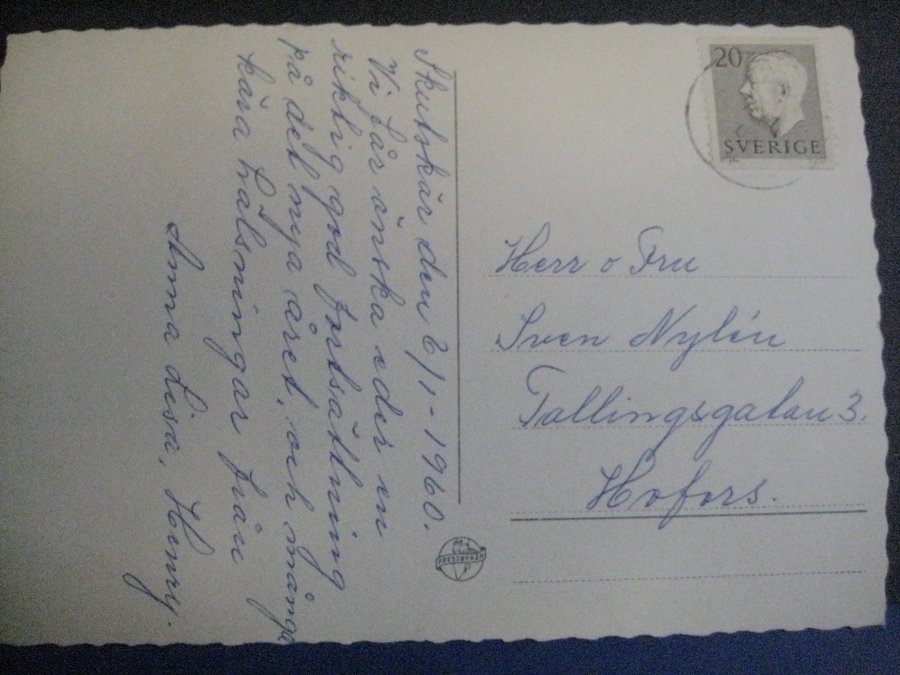 Skutskär den 6/1-1960.
Vi får önska eder en
riktig god fortsättning
på det nya året, och många
kära hälsningar från
Anna Lisa, Henry.
20
SVERIGE
Herr o Fru
Sven Nylén
Tallingsgatan 3.
Hofors.
PRESSBYRÅN